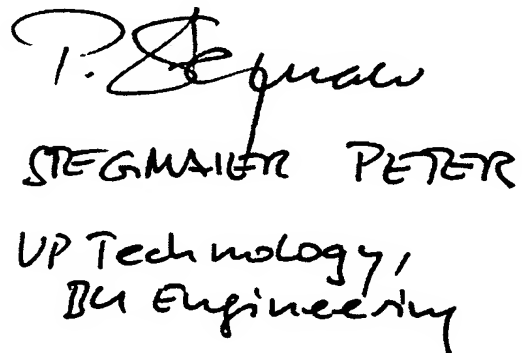 P. Stegmaier
STEGMAIER PETER
VP Technology,
BU Engineering